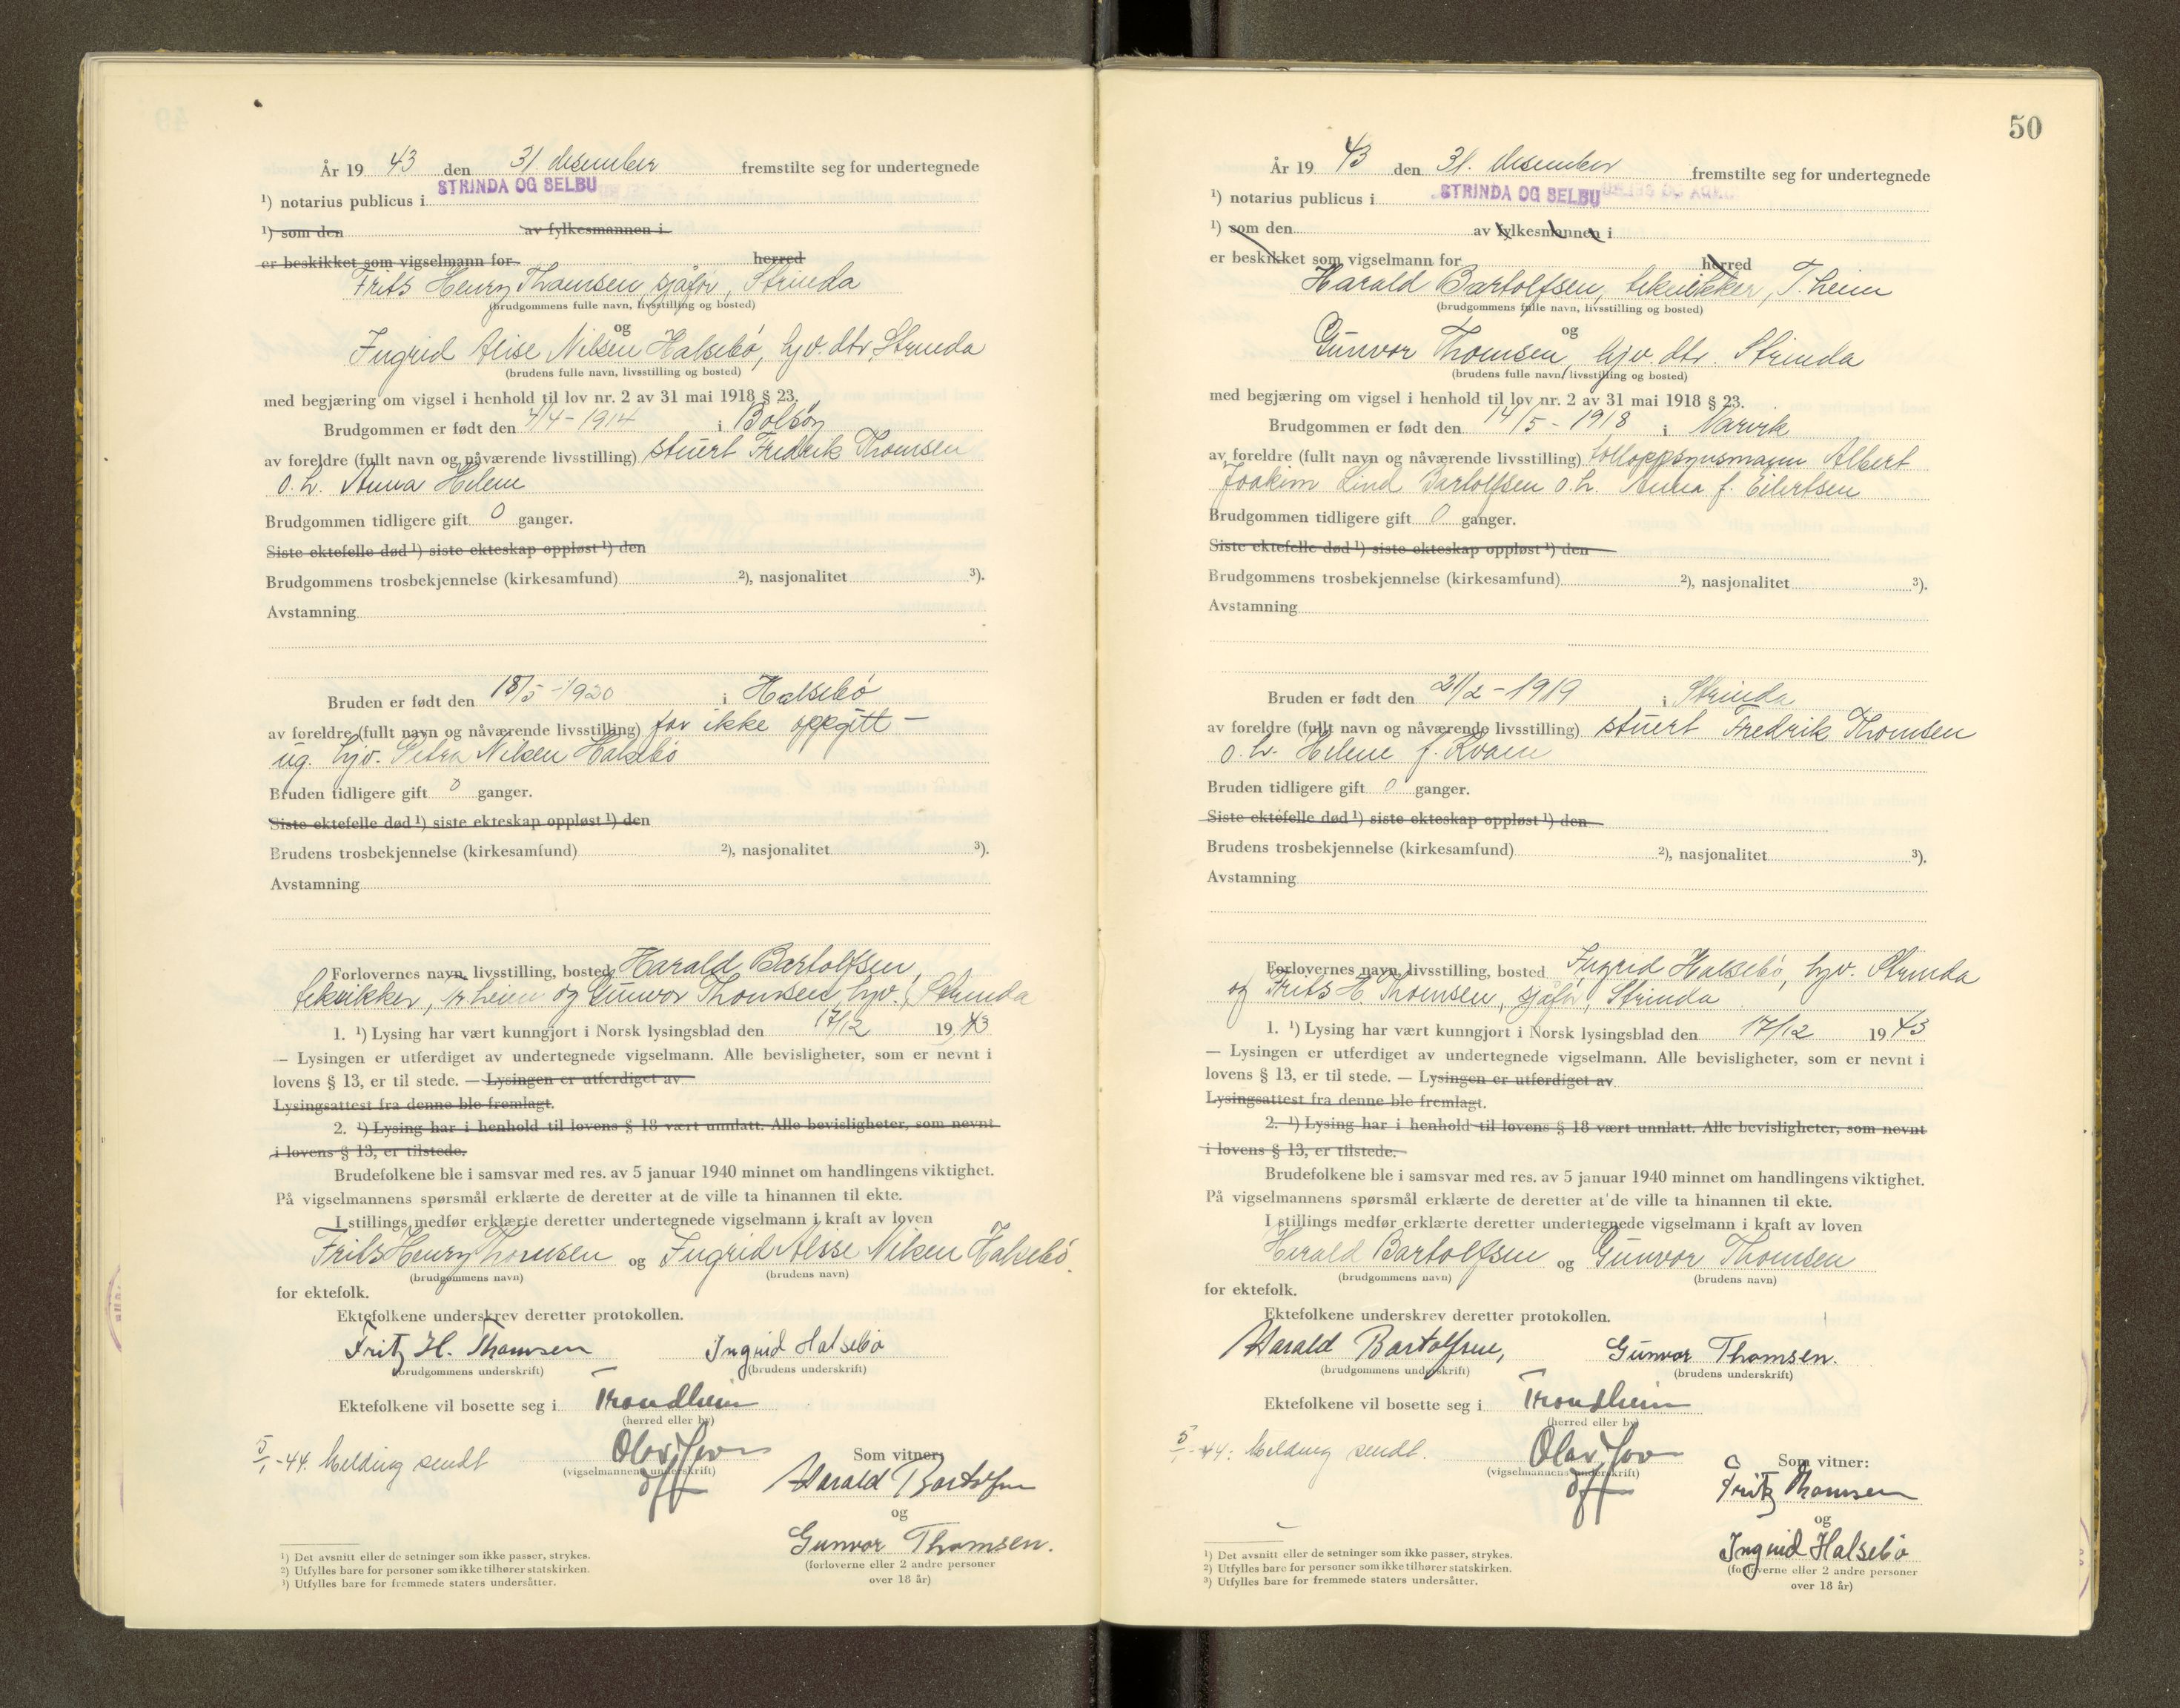 År 19 43 den 31 desember fremstilte seg for undertegnede
¹) notarius publicus i STRINDA OG SELBU
¹) som den av fylkesmannen i
er beskikket som vigselmann for herred
Frits Henry Thomsen, sjåfør, Strinda
(brudgommens fulle navn, livsstilling og bosted)
og
Ingrid Alise Nilsen Halsebö, hjv. dtr, Strinda
(brudens fulle navn, livsstilling og bosted)
med begjæring om vigsel i henhold til lov nr. 2 av 31 mai 1918 § 23.
Brudgommen er født den /4-1914 i Bolsöy
av foreldre (fullt navn og nåværende livsstilling) stuert Fredrik Thomsen
o. h. Anna Helene
Brudgommen tidligere gift 0 ganger.
Siste ektefelle død ¹) siste ekteskap oppløst ¹) den
Brudgommens trosbekjennelse (kirkesamfund) ²), nasjonalitet ³).
Avstamning
Bruden er født den 18/5-1920 i Halsebö
av foreldre (fullt navn og nåværende livsstilling) far ikke oppgitt -
ug. hjv. Petra Nilsen Halsebö
Bruden tidligere gift 0 ganger.
Siste ektefelle død ¹) siste ekteskap oppløst ¹) den
Brudens trosbekjennelse (kirkesamfund) ²), nasjonalitet ³).
Avstamning
Forlovernes navn, livsstilling, bosted Harald Bartolfsen,
teknikker, Tr.heim og Gunvor Thomsen, hjv., Strinda
1. ¹) Lysing har vært kunngjort i Norsk lysingsblad den 17/12 19 43
— Lysingen er utferdiget av undertegnede vigselmann. Alle bevisligheter, som er nevnt i
lovens § 13, er til stede. — Lysingen er utferdiget av
Lysingsattest fra denne ble fremlagt.
2. ¹) Lysing har i henhold til lovens § 18 vært unnlatt. Alle bevisligheter, som nevnt
i lovens § 13, er tilstede.
Brudefolkene ble i samsvar med res. av 5 januar 1940 minnet om handlingens viktighet.
På vigselmannens spørsmål erklærte de deretter at de ville ta hinannen til ekte.
I stillings medfør erklærte deretter undertegnede vigselmann i kraft av loven
Frits Henry Thomsen og Ingrid Alise Nilsen Halsebö.
(brudgommens navn) (brudens navn)
for ektefolk.
Ektefolkene underskrev deretter protokollen.
Fritz H. Thomsen Ingrid Halsebö
(brudgommens underskrift) (brudens underskrift)
Ektefolkene vil bosette seg i Trondheim
(herred eller by)
5/1-44. Melding sendt
(vigselmannens underskrift)
Som vitner:
Harald Bartolfsen
og
Gunvor Thomsen.
(forloverne eller 2 andre personer
over 18 år)
¹) Det avsnitt eller de setninger som ikke passer, strykes.
²) Utfylles bare for personer som ikke tilhører statskirken.
³) Utfylles bare for fremmede staters undersåtter.
50
År 19 43 den 31. desember fremstilte seg for undertegnede
¹) notarius publicus i STRINDA OG SELBU
¹) som den av fylkesmannen i
er beskikket som vigselmann for herred
Harald Bartolfsen, teknikker, T.heim
(brudgommens fulle navn, livsstilling og bosted)
og
Gunvor Thomsen, hjv. dtr. Strinda
(brudens fulle navn, livsstilling og bosted)
med begjæring om vigsel i henhold til lov nr. 2 av 31 mai 1918 § 23.
Brudgommen er født den 14/5-1918 i Narvik
av foreldre (fullt navn og nåværende livsstilling) tolloppsynsmann Albert
Joakim Lind Bartolfsen o. h. Anna f. Eilertsen
Brudgommen tidligere gift 0 ganger.
Siste ektefelle død ¹) siste ekteskap oppløst ¹) den
Brudgommens trosbekjennelse (kirkesamfund) ²), nasjonalitet ³).
Avstamning
Bruden er født den 21/2-1919 i Strinda
av foreldre (fullt navn og nåværende livsstilling) stuert Fredrik Thomsen
o. h. Helene f. Kvam
Bruden tidligere gift 0 ganger.
Siste ektefelle død ¹) siste ekteskap oppløst ¹) den
Brudens trosbekjennelse (kirkesamfund) ²), nasjonalitet ³).
Avstamning
Forlovernes navn, livsstilling, bosted Ingrid Halsebö, hjv. Strinda
og Frits H. Thomsen, sjåfør, Strinda
1. ¹) Lysing har vært kunngjort i Norsk lysingsblad den 17/12 19 43
— Lysingen er utferdiget av undertegnede vigselmann. Alle bevisligheter, som er nevnt i
lovens § 13, er til stede. — Lysingen er utferdiget av
Lysingsattest fra denne ble fremlagt.
2. ¹) Lysing har i henhold til lovens § 18 vært unnlatt. Alle bevisligheter, som nevnt
i lovens § 13, er tilstede.
Brudefolkene ble i samsvar med res. av 5 januar 1940 minnet om handlingens viktighet.
På vigselmannens spørsmål erklærte de deretter at de ville ta hinannen til ekte.
I stillings medfør erklærte deretter undertegnede vigselmann i kraft av loven
Harald Bartolfsen og Gunvor Thomsen
(brudgommens navn) (brudens navn)
for ektefolk.
Ektefolkene underskrev deretter protokollen.
Harald Bartolfsen, Gunvor Thomsen.
(brudgommens underskrift) (brudens underskrift)
Ektefolkene vil bosette seg i Trondheim
(herred eller by)
5/1-44. Melding sendt.
(vigselmannens underskrift)
Som vitner:
Fritz Thomsen
og
Ingrid Halsebö
(forloverne eller 2 andre personer
over 18 år)
¹) Det avsnitt eller de setninger som ikke passer, strykes.
²) Utfylles bare for personer som ikke tilhører statskirken.
³) Utfylles bare for fremmede staters undersåtter.